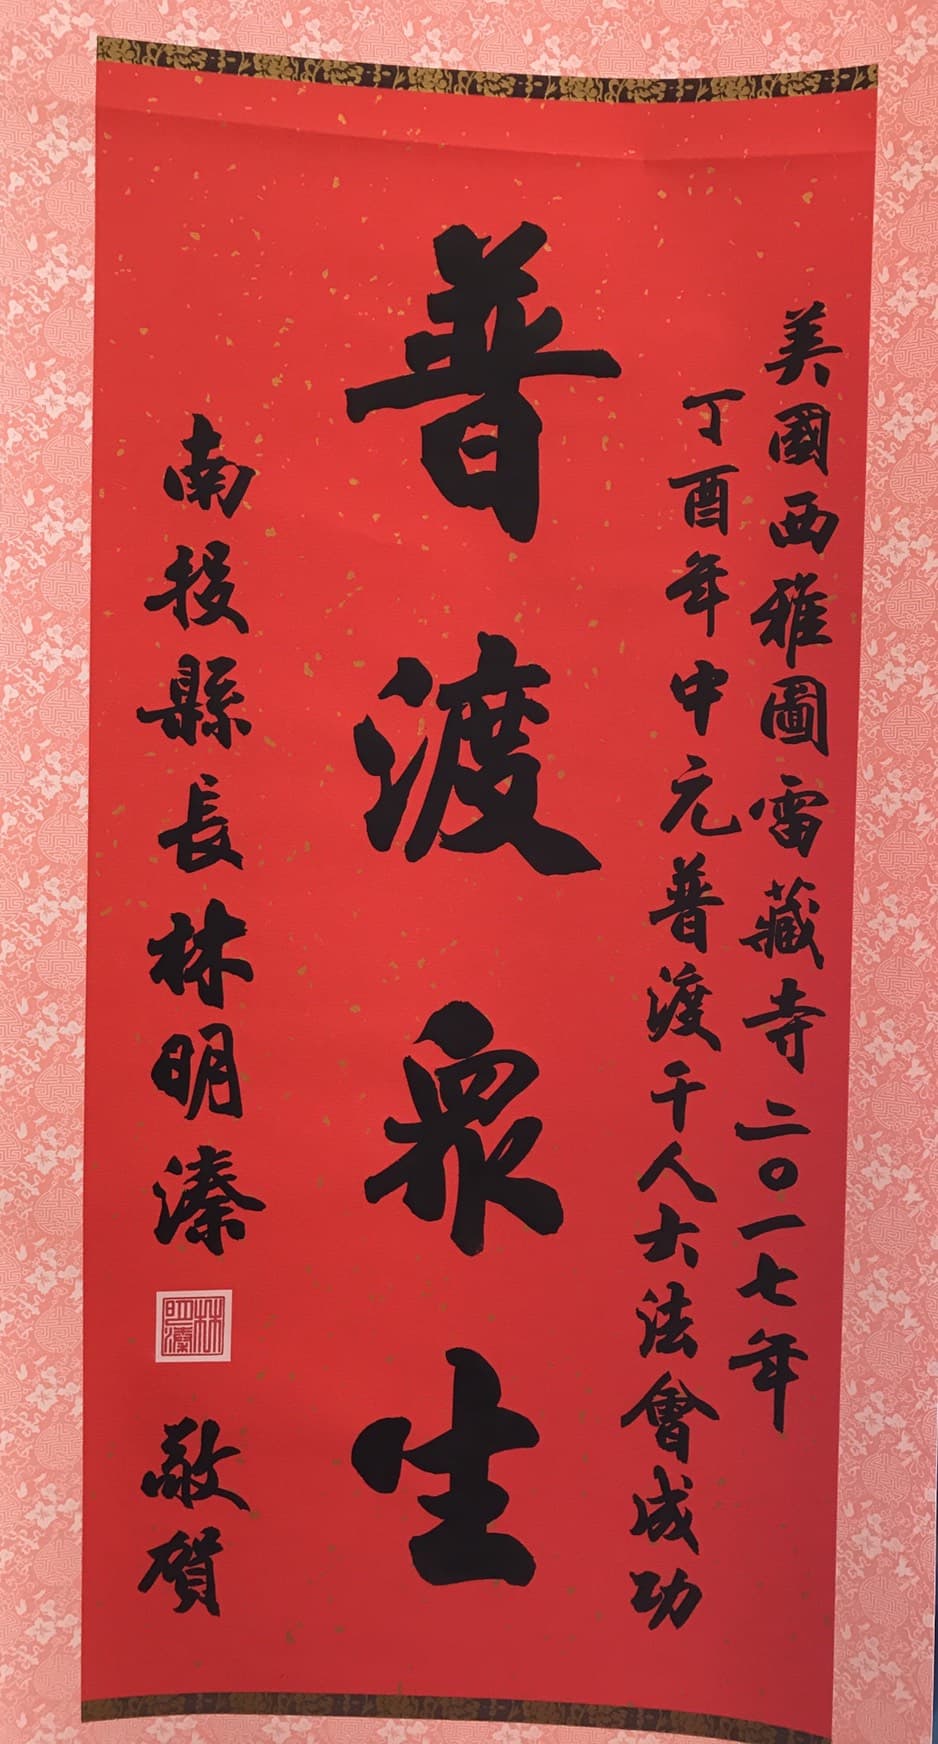 美國西雅圖雷藏寺二〇一七年
丁酉年中元普渡千人大法會成功
普渡眾生
南投縣長林明溱
林明溱
敬賀